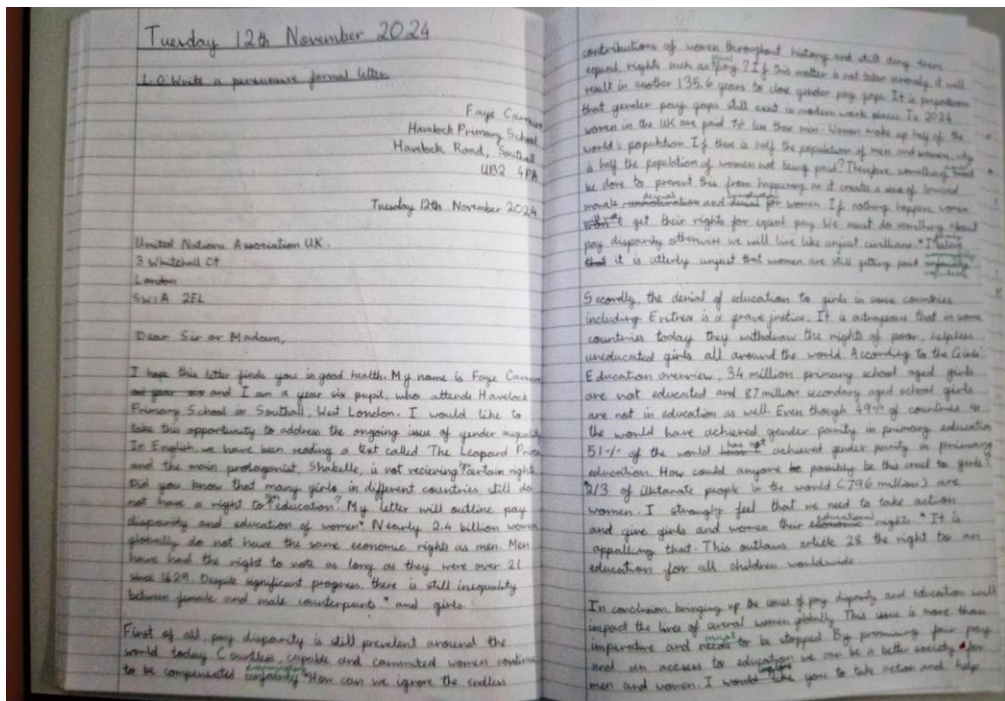 Tuesday 12th November 2024
L.O. Write a persuasive formal letter.
Faye
Havelock Primary School
Havelock Road, Southall
UB2 4PA
Tuesday 12th November 2024
United Nations Association UK.
3 Whitehall Ct
London
SW1A 2EL
Dear Sir or Madam,
I hope this letter finds you in good health. My name is Faye
and I am a year six pupil, who attends Havelock
Primary School in Southall, West London. I would like to
take this opportunity to address the ongoing issue of gender
In English, we have been reading a text called The Leopard
and the main protagonist, Shakelle, is not recieving certain
Did you know that many girls in different countries still do
not have a right to an education? My letter will outline pay
disparity and education of women* Nearly 2.4 billion
globally do not have the same economic rights as men. Men
have had the right to vote as long as they were over 21
since Despite significant progress, there is still inequality
between female and male counterparts * and girls.
First of all, pay disparity is still prevalent around the
world today. Countless, capable and commited women continue
to be compensated unfairly *How can we ignore the endless
contributions of women throughout history and still deny them
equal rights such as pay? If this matter is not taken seriously, it will
result in another 135.6 years to close gender pay gaps. It is
that gender pay gaps still exist in modern work places. In 2024
women in the UK are paid less than men. Women make up half of the
world's population. If there is half the population of men and women, why
is half the population of women not being paid? Therefore, something
be done to prevent this from happening as it creates a sense of
morale and denial for women. If nothing happens, women
get their rights for equal pay. We must do something about
pay disparity otherwise we will live like unjust civilians. *I
it is utterly unjust that women are still getting paid
Secondly, the denial of education to girls in some countries
including Eritrea is a grave justice. It is outrageous that in some
countries today they withdraw the rights of poor, helpless
uneducated girls all around the world. According to the
Education overview, 34 million primary school aged girls
are not educated and 87 million secondary aged school girls
are not in education as well. Even though 49% of countries in
the world have achieved gender parity in primary education
51% of the world has not achieved gender parity in primary
education. How could anyone be possibly be this cruel to girls?
2/3 of illiterate people in the world (796 million) are
women. I strongly feel that we need to take action
and give girls and women their educational rights. *It is
appalling that. This outlaws article 28 the right to an
education for all children worldwide
In conclusion, bringing up the issues of pay disparity and education will
impact the lives of several women globally. This issue is more than
imperative and must to be stopped. By promising fair pay
and an access to education we can be a better society for
men and women. I would implore you to take action and help